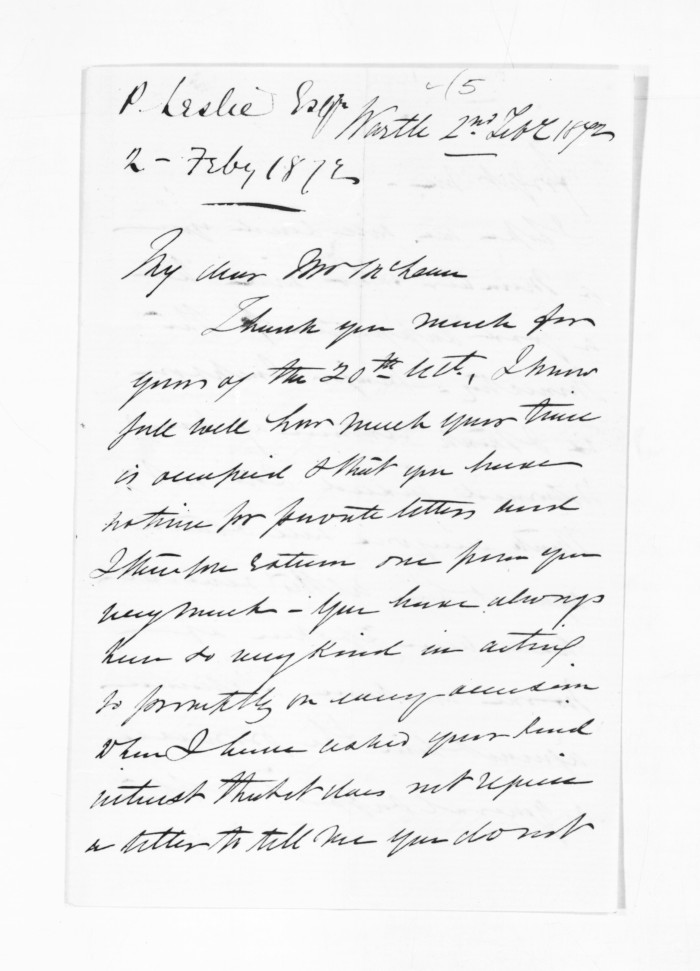 5
P. Leslie Esqr
Warth 2nd Feby 1872
2 - Feby 1872
My dear Mr McLean
Thank you much for
yours of the 20th Ult., I know
full well how much your time
is occupied & that you have
no time for private letters and
I therefore Esteem one from you
very much - You have always
been so very kind in acting
so promptly on every occasion
when I have asked your kind
interest that it does not require
a letter to tell me you do not